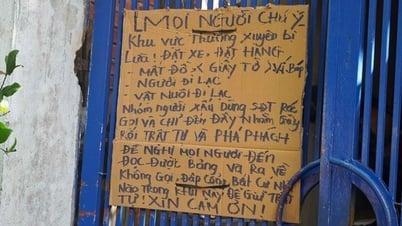 MỌI NGƯỜI CHÚ Ý
Khu vực Thường xuyên bị
LỪA! ĐẶT XE, ĐẶT HÀNG
- MẤT ĐỒ X GIẤY TỜ
- NGƯỜI ĐI LẠC
- VẬT NUÔI ĐI LẠC
Nhóm người xấu Dùng SĐT Rác
GỌI VÀ CHỈ ĐẾN ĐÂY NHẰM GÂY
RỐI TRẬT TỰ VÀ PHÁ PHÁCH
ĐỀ NGHỊ MỌI NGƯỜI ĐẾN
ĐỌC ĐƯỢC BẢNG, VÀ RA VỀ
KHÔNG GỌI, ĐẬP CỔNG BẤT CỨ NHÀ
NÀO TRONG KHU NÀY ĐỂ GIỮ TRẬT
TỰ! XIN CẢM ƠN!